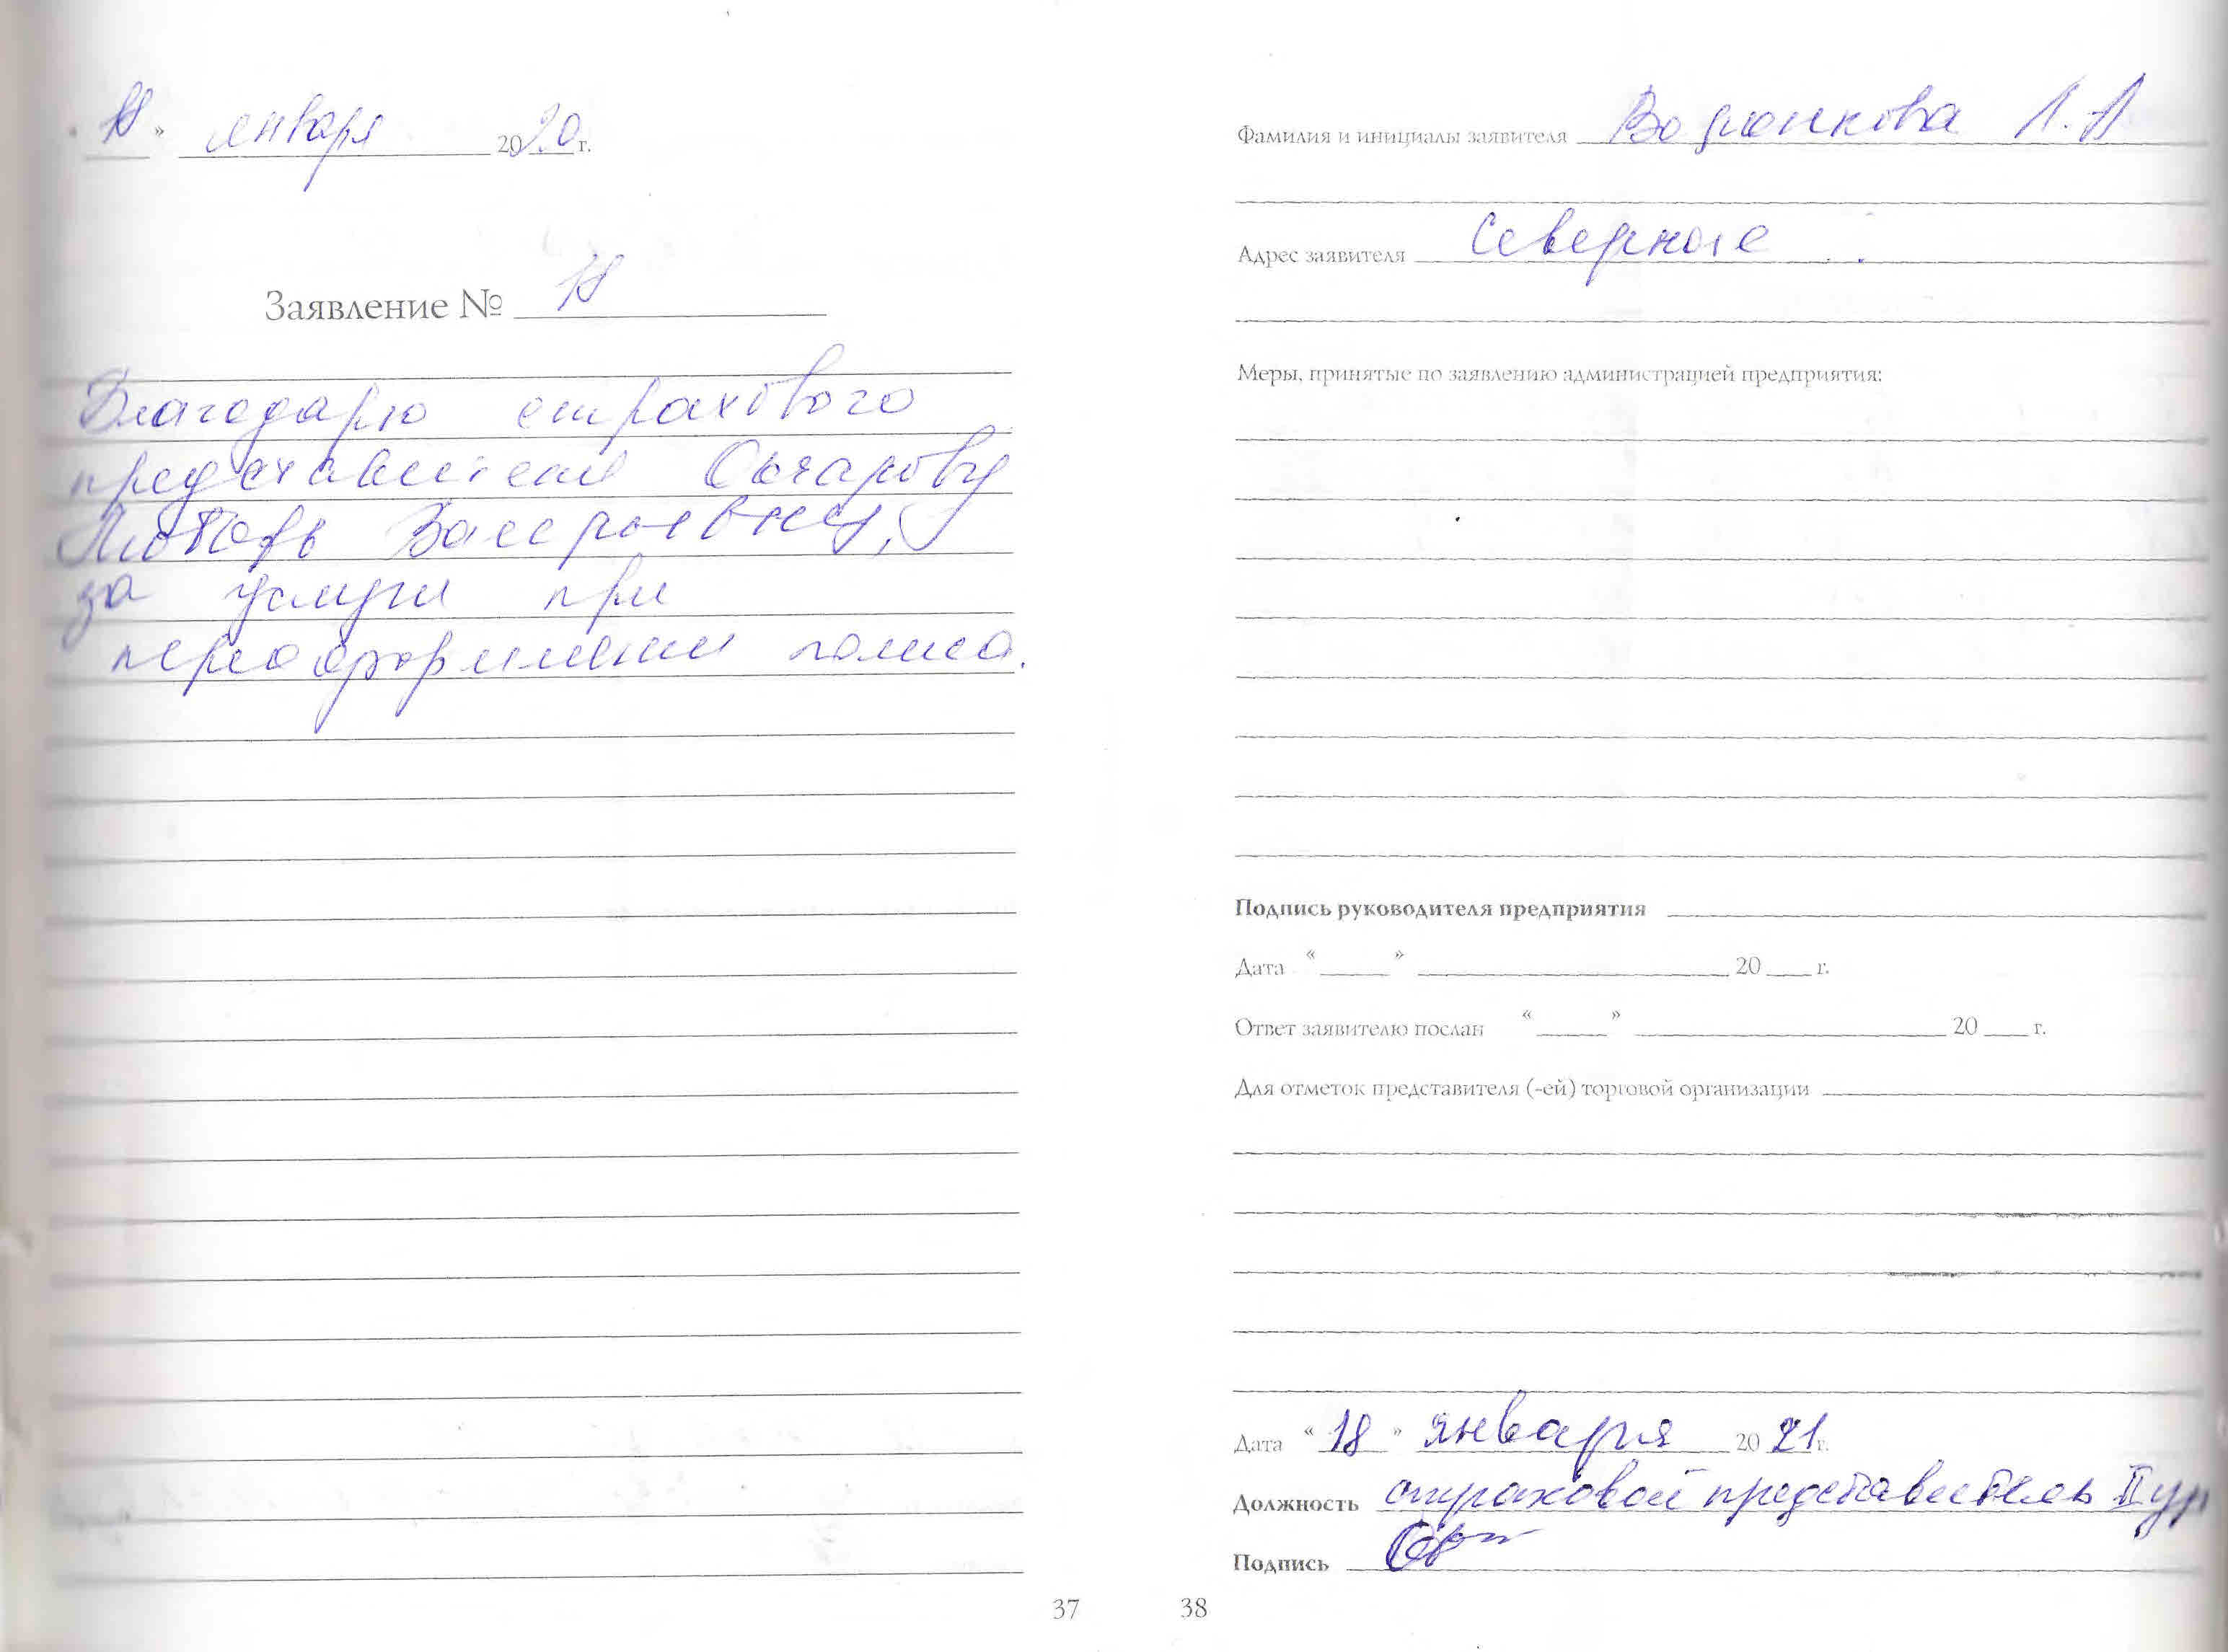 « 18 » января 2020 г.
Заявление № 18
Благодарю страхового
представителя Овчарову
Любовь Валерьевну,
за услуги при
переоформлении полиса.
37
Фамилия и инициалы заявителя Водянкова Л.А
Адрес заявителя Северное
Меры, принятые по заявлению администрацией предприятия:
Подпись руководителя предприятия
Дата « » 20 г.
Ответ заявителю послан « » 20 г.
Для отметок представителя (-ей) торговой организации
Дата « 18 » января 2021 г.
Должность страховой представитель II ур
Подпись
38